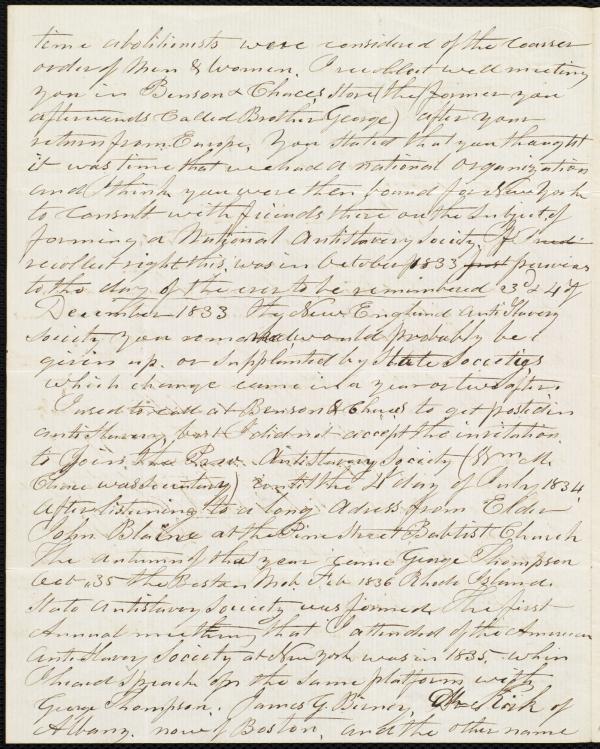 time abolitionists were considered of the coarser
order of Men & Women. I recollect well meeting
you in Benson & Chace's Store (the former you
afterwards Called Brother George) after your
return from Europe. You stated that you thought
it was time that we had a national organization
and I think you were then bound for New York
to consult with friends there on the Subject of
forming a National Antislavery Society. If I
recollect right this was in October 1833 just previous
to the day of the ever to be remembered 3d & 4th of
December 1833 the New England anti Slavery
Society you remarked would probably be
given up. or Supplanted by State Societies
which change came in a year or two after.
I used to call at Benson & Chace's to get posted in
anti Slavery but I did not accept the invitation
to join the Prov. AntiSlavery Society (Wm M.
Chace was Secretary) until the 4 day of July 1834,
after listening to a long adress from Elder
John Blaine at the Pine Street Baptist Church
The autumn of that year came George Thompson
Oct. 35 the Boston Mob Feb 1836 Rhode Island
State Antislavery Society was formed. The first
Annual meeting that I attended of the American
anti Slavery Society at New York was in 1835, when
I heard speach on the Same platform with
George Thompson, James G. Birney, Mr Kirk of
Albany. now of Boston, and the other name